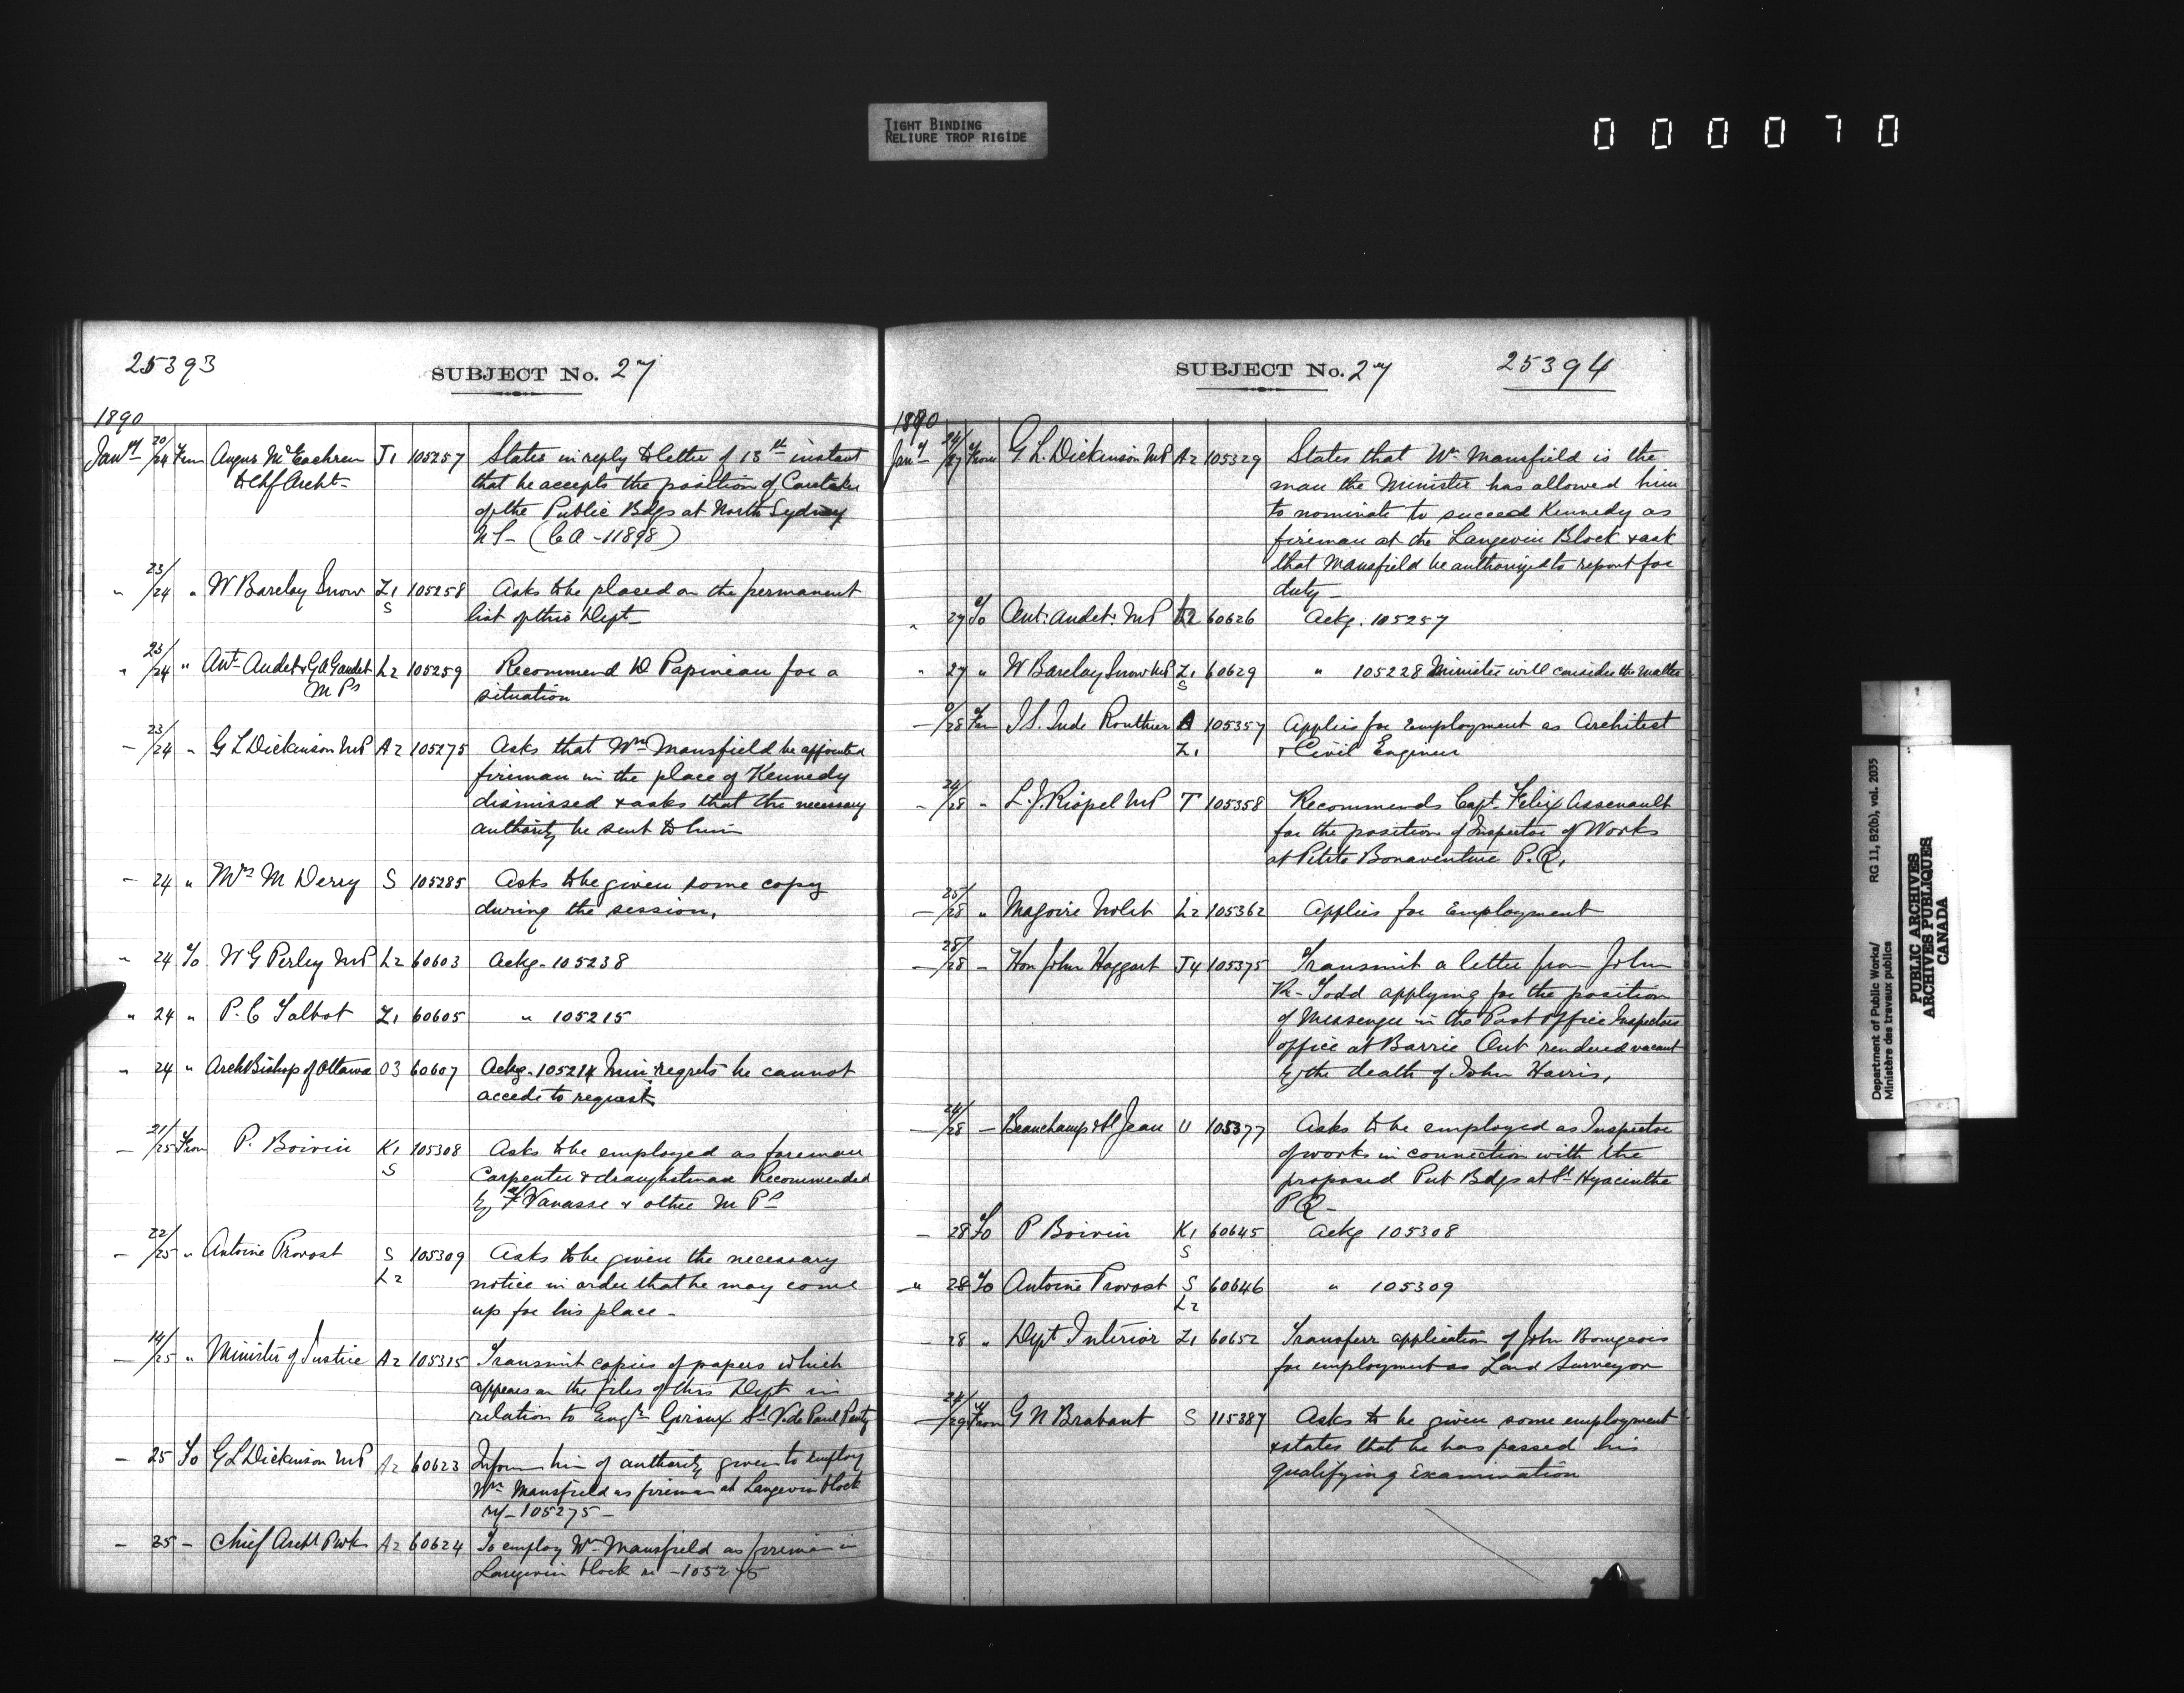 TIGHT BINDING
RELIURE TROP RIGIDE
000070
25393
SUBJECT No. 27
1890
Jany 20/24 From Angus McEachren J1 105257 States in reply to letter of 13th instant
to Chf Archt- that he accepts the position of Caretaker
of the Public Bdgs at North Sydney
N S- (CA-11898)
" 23/24 " W Barclay Snow Z1 105258 Asks to be placed on the permanent
S list of this Dept-
" 23/24 " Ant- Audet & G A Gaudet L2 105259 Recommend D Papineau for a
M Ps situation
- 23/24 " G L Dickinson MP A2 105275 Asks that Wm Mansfield be appointed
fireman in the place of Kennedy
dismissed & asks that the necessary
authority be sent to him
- 24 " Mrs M Derry S 105285 Asks to be given some copy
during the session.
" 24 To W G Perley MP L2 60603 Ackg- 105238
" 24 " P. C Talbot Z1 60605 " 105215
" 24 " ArchBishop of Ottawa 03 60607 Ackg- 105214 Mini regrets he cannot
accede to request
- 21/25 From P. Boivin K1 105308 Asks to be employed as foreman
S Carpenter & draughtsman Recommended
by F Vanasse & other M Ps
- 22/25 " Antoine Provost S 105309 Asks to be given the necessary
L2 notice in order that he may come
up for his place-
- 14/25 " Minister of Justice A2 105315 Transmit copies of papers which
appears on the files of this Dept in
relation to Engr Giroux St V. de Paul Penty
- 25 To G L Dickinson MP A2 60623 Inform him of authority given to employ
Wm Mansfield as fireman at Langevin block
ry- 105275-
- 25 - Chief Archt PWk A2 60624 To employ Wm Mansfield as fireman in
Langevin block re -105275
SUBJECT No. 27
25394
1890
Jany 24/27 From G L. Dickinson MP A2 105329 States that Wm Mansfield is the
man the Minister has allowed him
to nominate to succeed Kennedy as
fireman at the Langevin Block & ask
that Mansfield be authorized to report for
duty-
" 27 To Ant: Audet: MP L2 60626 Ackg. 105257
" 27 " W Barclay Snow MP Z1 60629 " 105228 Minister will consider the matter
S
- 28 From J S. Jude Routhier A 105357 Applies for employment as Architect
Z1 & Civil Engineer
- 24/28 " L. J. Riopel MP T 105358 Recommends Capt. Felix Assenault
for the position of Inspector of Works
at Petite Bonaventure P.Q.
- 25/28 " Magoire Nolet L2 105362 Applies for Employment
- 25/28 - Hon John Haggart J4 105375 Transmit a letter from John
R- Todd applying for the position
of Messenger in the Post Office Inspectors
office at Barrie Ont rendered vacant
by the death of John Harris,
- 24/28 - Beauchamp & St Jean U 105377 Asks to be employed as Inspector
of works in connection with the
proposed Pub Bdgs at St Hyacinthe
P Q-
- 28 To P Boivin K1 60645 Ackg 105308
S
" 28 To Antoine Provost S 60646 " 105309
L2
- 28 " Dept Interior Z1 60652 Transferr application of John Bourgeois
for employment as Land Surveyor
- 24/29 From G N Brabant S 115387 Asks to be given some employment
& states that he has passed his
qualifying examination
Department of Public Works/
Ministère des travaux publics
RG 11, B2(b), vol. 2035
PUBLIC ARCHIVES
ARCHIVES PUBLIQUES
CANADA